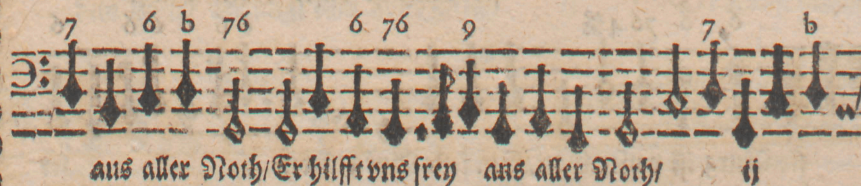 7 6 b 76 6 76 9 7 b
aus aller Noth/Er hilfft vns frey aus aller Noth/ ij